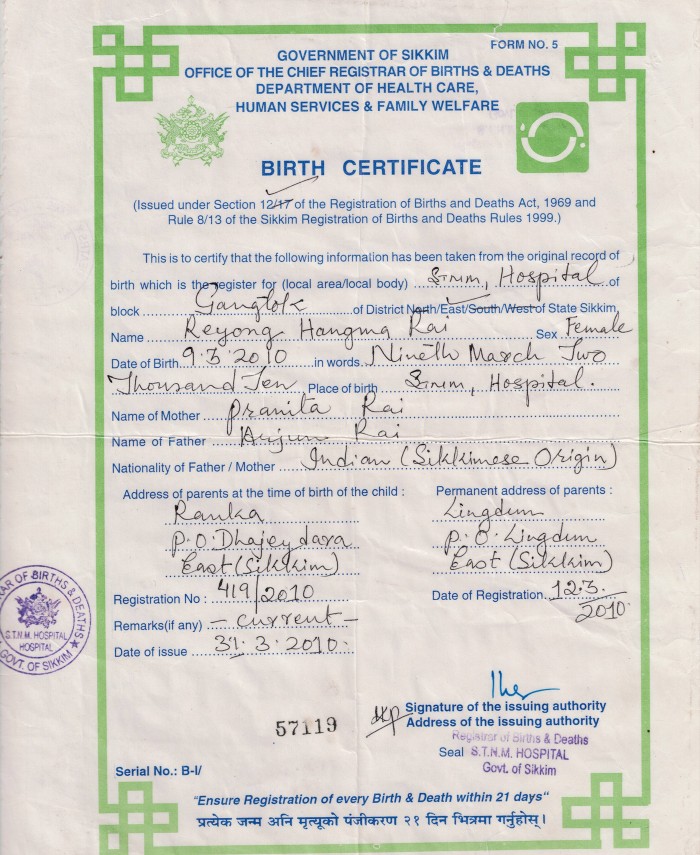 FORM NO. 5
GOVERNMENT OF SIKKIM
OFFICE OF THE CHIEF REGISTRAR OF BIRTHS & DEATHS
DEPARTMENT OF HEALTH CARE,
HUMAN SERVICES & FAMILY WELFARE
BIRTH CERTIFICATE
(Issued under Section 12/17 of the Registration of Births and Deaths Act, 1969 and
Rule 8/13 of the Sikkim Registration of Births and Deaths Rules 1999.)
This is to certify that the following information has been taken from the original record of
birth which is the register for (local area/local body) STNM, Hospital of
block Gangtok of District North/East/South/West of State Sikkim
Name Reyong Hangma Rai Sex Female
Date of Birth 9.3.2010 in words Nineth March Two
Thousand Ten Place of birth STNM, Hospital.
Name of Mother Pranita Rai
Name of Father Arjun Rai
Nationality of Father / Mother Indian (Sikkimese Origin)
Address of parents at the time of birth of the child :
Ranka
P.O. Dhajey dara
East (Sikkim)
Permanent address of parents :
Lingdum
P.O. Lingdum
East (Sikkim)
Registration No : 419/2010
Date of Registration. 12.3.2010
Remarks(if any) - current -
Date of issue 31.3.2010.
REGISTRAR OF BIRTHS & DEATHS
S.T.N.M. HOSPITAL
HOSPITAL
GOVT. OF SIKKIM
Signature of the issuing authority
57119
Address of the issuing authority
Registrar of Births & Deaths
Seal S.T.N.M. HOSPITAL
Govt. of Sikkim
Serial No.: B-I/
"Ensure Registration of every Birth & Death within 21 days"
प्रत्येक जन्म अनि मृत्यूको पंजीकरण २१ दिन भित्रमा गर्नुहोस्।